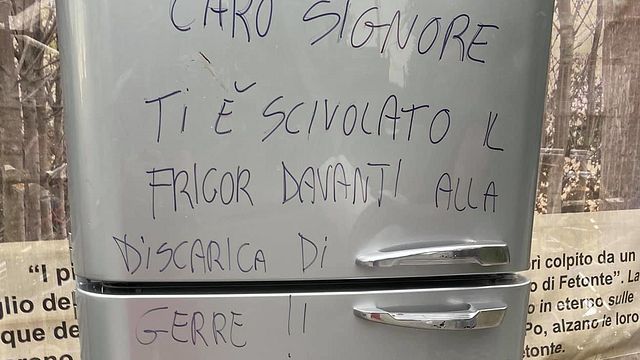 CARO SIGNORE
TI È SCIVOLATO IL
FRIGOR DAVANTI ALLA
DISCARICA DI
GERRE !!
“I pi
glio del
que de
rì colpito da un
o di Fetonte”. La
o in eterno sulle
Po, alzano le loro
etonte.